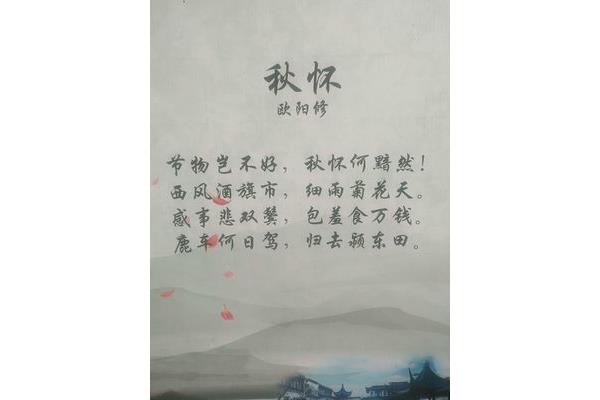 秋怀
欧阳修
节物岂不好，秋怀何黯然！
西风酒旗市，细雨菊花天。
感事悲双鬓，包羞食万钱。
鹿车何日驾，归去颍东田。